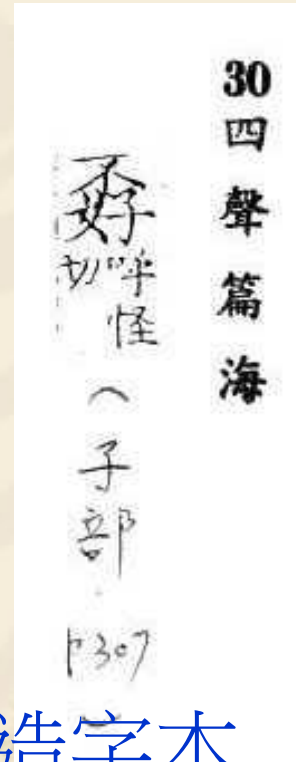 30四聲篇海
孬呼怪切（子部.P307）
字